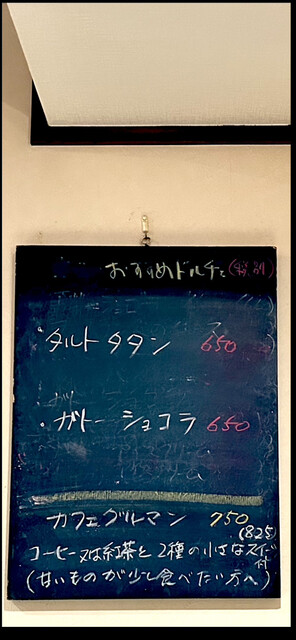 おすすめドルチェ(税別)
・タルトタタン 650
・ガトーショコラ 650
カフェグルマン 750
(825)
コーヒー又は紅茶と2種の小さなスイーツ付
(甘いものが少し食べたい方へ)